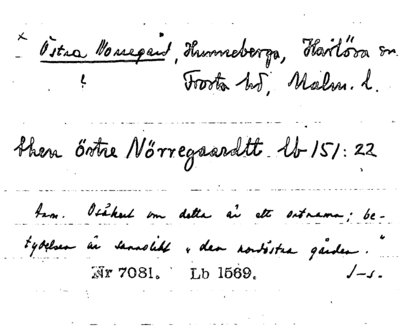 x Östra Norregård, Hunneberga, Harlösa sn
! Frosta hd, Malm. l.
then östre Nörregaardtt lb 151:22
Anm. Osäkert om detta är ett ortnamn; be-
tydelsen är sannolikt "den nordöstra gården."
Nr 7081. Lb 1569. J-s.